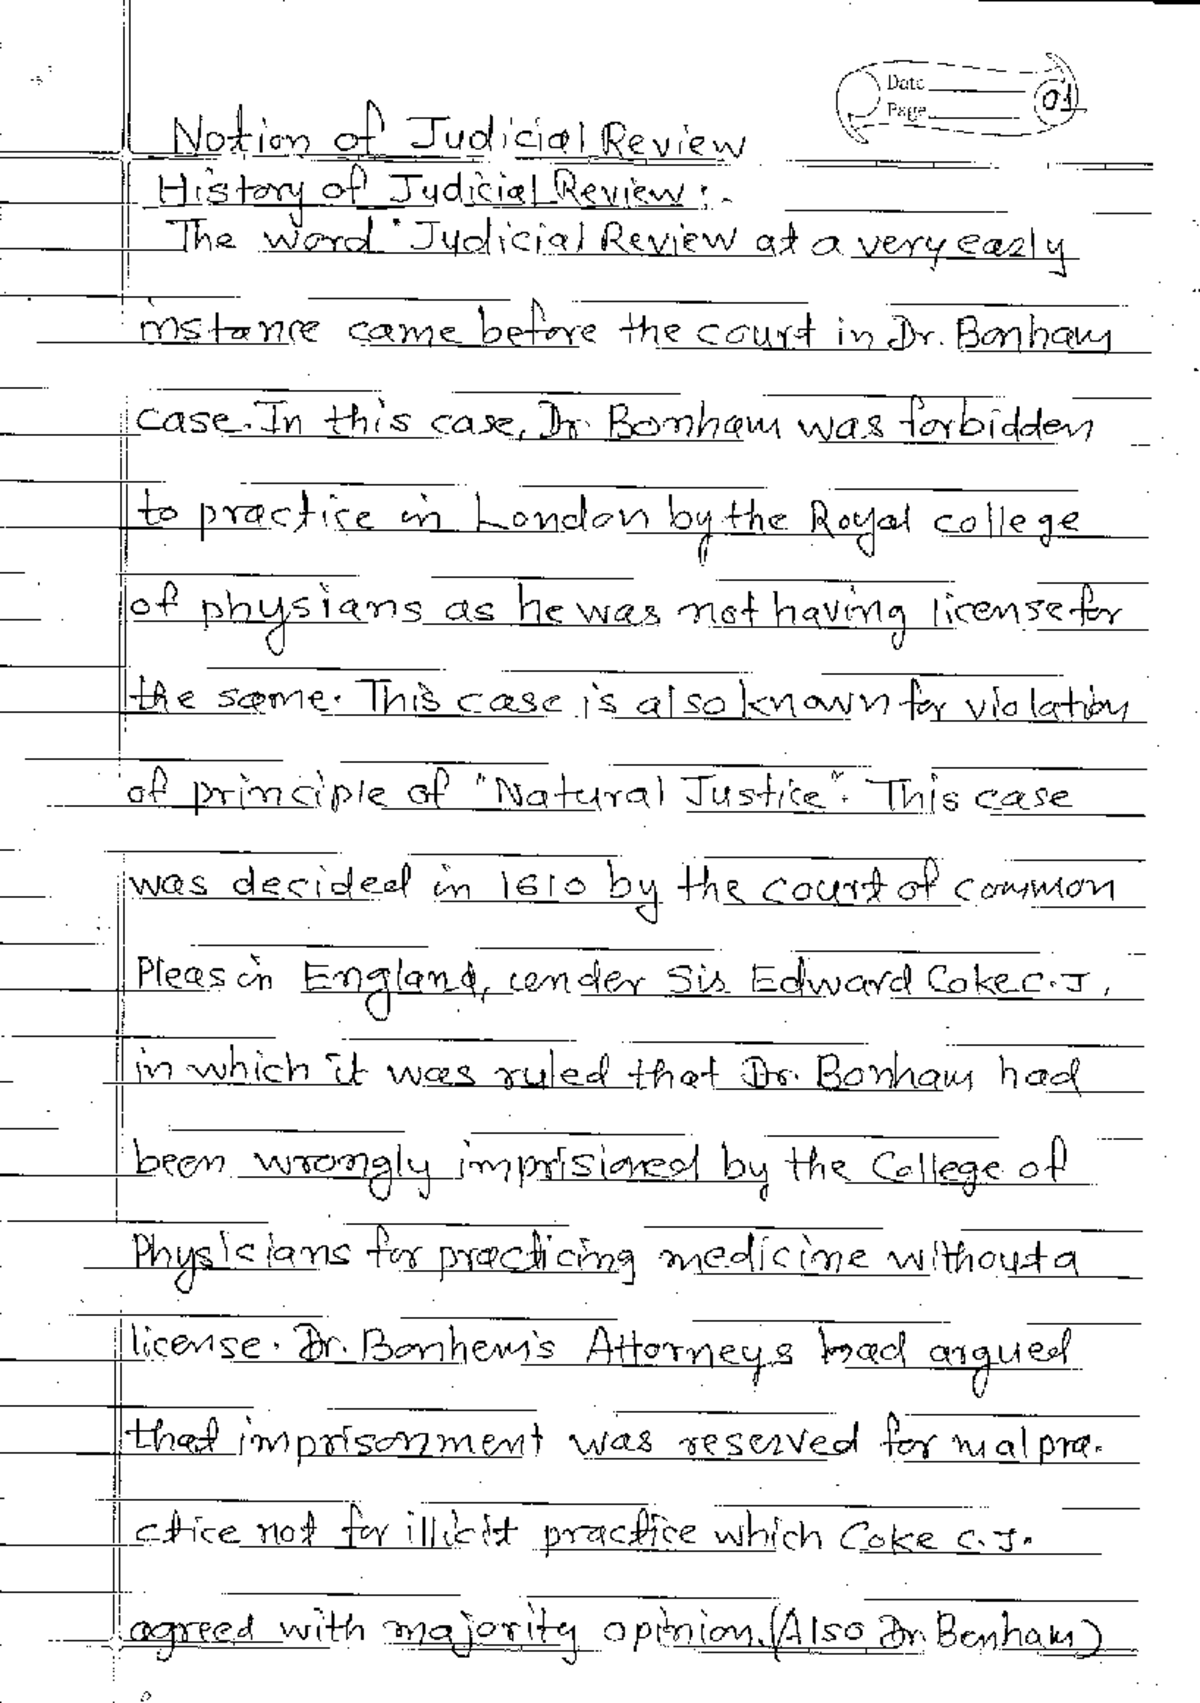 Date
Page 01
Notion of Judicial Review
History of Judicial Review :-
The word "Judicial Review at a very early
instance came before the court in Dr. Bonham
case. In this case, Dr. Bonham was forbidden
to practice in London by the Royal college
of physians as he was not having license for
the same. This case is also known for violation
of principle of "Natural Justice". This case
was decided in 1610 by the court of common
Pleas in England, under Sir Edward Coke C.J.,
in which it was ruled that Dr. Bonham had
been wrongly imprisioned by the College of
Physicians for practicing medicine without a
license. Dr. Bonhem's Attorneys had argued
that imprisonment was reserved for malpra-
ctice not for illicit practice which Coke C.J.
agreed with majority opinion. (Also Dr. Benham)